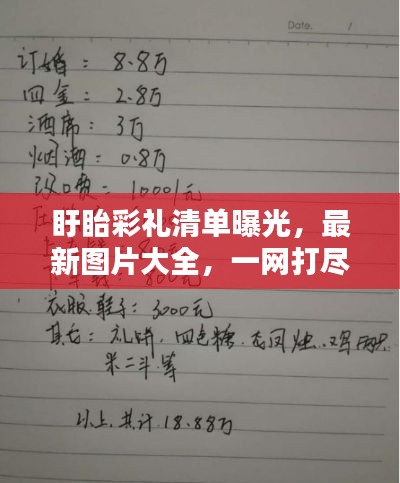 Date. /
订婚：8.8万
四金：2.8万
酒席：3万
烟酒：0.8万
改口费：10001元
盱眙彩礼清单曝光，最
新图片大全，一网打尽
衣服鞋子：3000元
其它：礼饼，四色糖，龙凤烛，鸡两只
米二斗等
以上共计18.88万